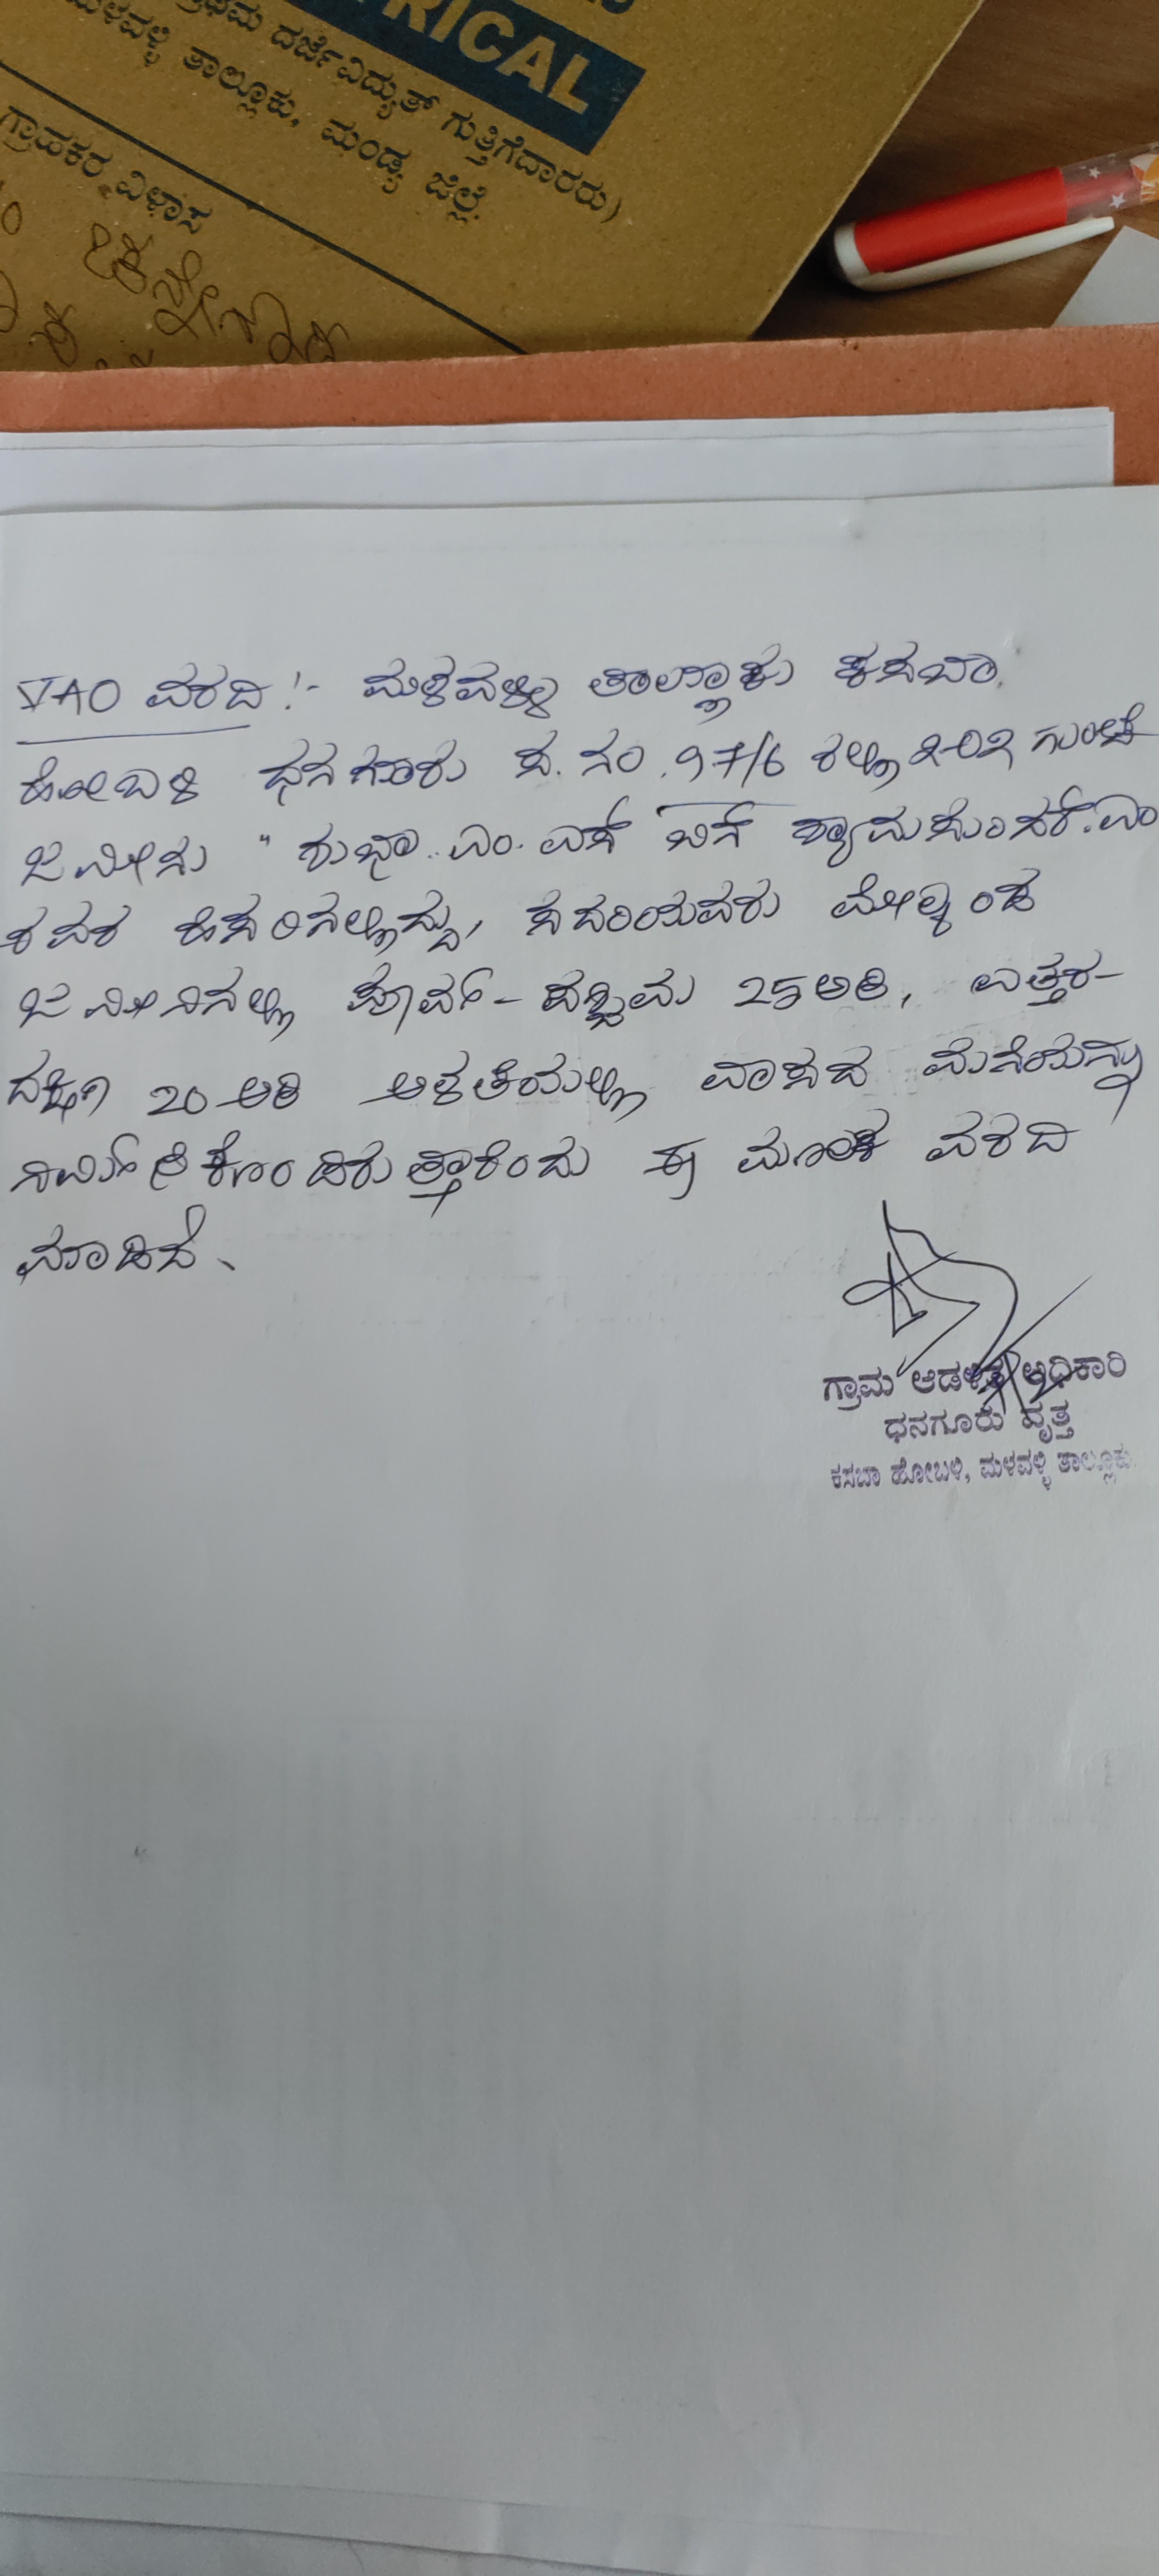 TRICAL
ಪ್ರಥಮ ದರ್ಜೆ ವಿದ್ಯುತ್ ಗುತ್ತಿಗೆದಾರರು)
ಮಳವಳ್ಳಿ ತಾಲ್ಲೂಕು, ಮಂಡ್ಯ ಜಿಲ್ಲೆ.
ಗ್ರಾಹಕರ ವಿಳಾಸ
VAO ವರದಿ :- ಮಳವಳ್ಳಿ ತಾಲ್ಲೂಕು ಕಸಬಾ
ಹೋಬಳಿ ಧನಗೂರು ಸ.ನಂ. 97/6 ರಲ್ಲಿ ೩-೦೩ ಗುಂಟೆ
ಜಮೀನು "ಶುಭಾ.ಎಂ.ಎಸ್ ಬಿನ್ ಶ್ಯಾಮಸುಂದರ್.ಎಂ
ರವರ ಹೆಸರಿನಲ್ಲಿದ್ದು, ಸದರಿಯವರು ಮೇಲ್ಕಂಡ
ಜಮೀನಿನಲ್ಲಿ ಪೂರ್ವ-ಪಶ್ಚಿಮ 25 ಅಡಿ, ಉತ್ತರ-
ದಕ್ಷಿಣ 20 ಅಡಿ ಅಳತೆಯಲ್ಲಿ ವಾಸದ ಮನೆಯನ್ನು
ನಿರ್ಮಿಸಿಕೊಂಡಿರುತ್ತಾರೆಂದು ಈ ಮೂಲಕ ವರದಿ
ಮಾಡಿದೆ.
ಗ್ರಾಮ ಆಡಳಿತ ಅಧಿಕಾರಿ
ಧನಗೂರು ವೃತ್ತ
ಕಸಬಾ ಹೋಬಳಿ, ಮಳವಳ್ಳಿ ತಾಲ್ಲೂಕು.